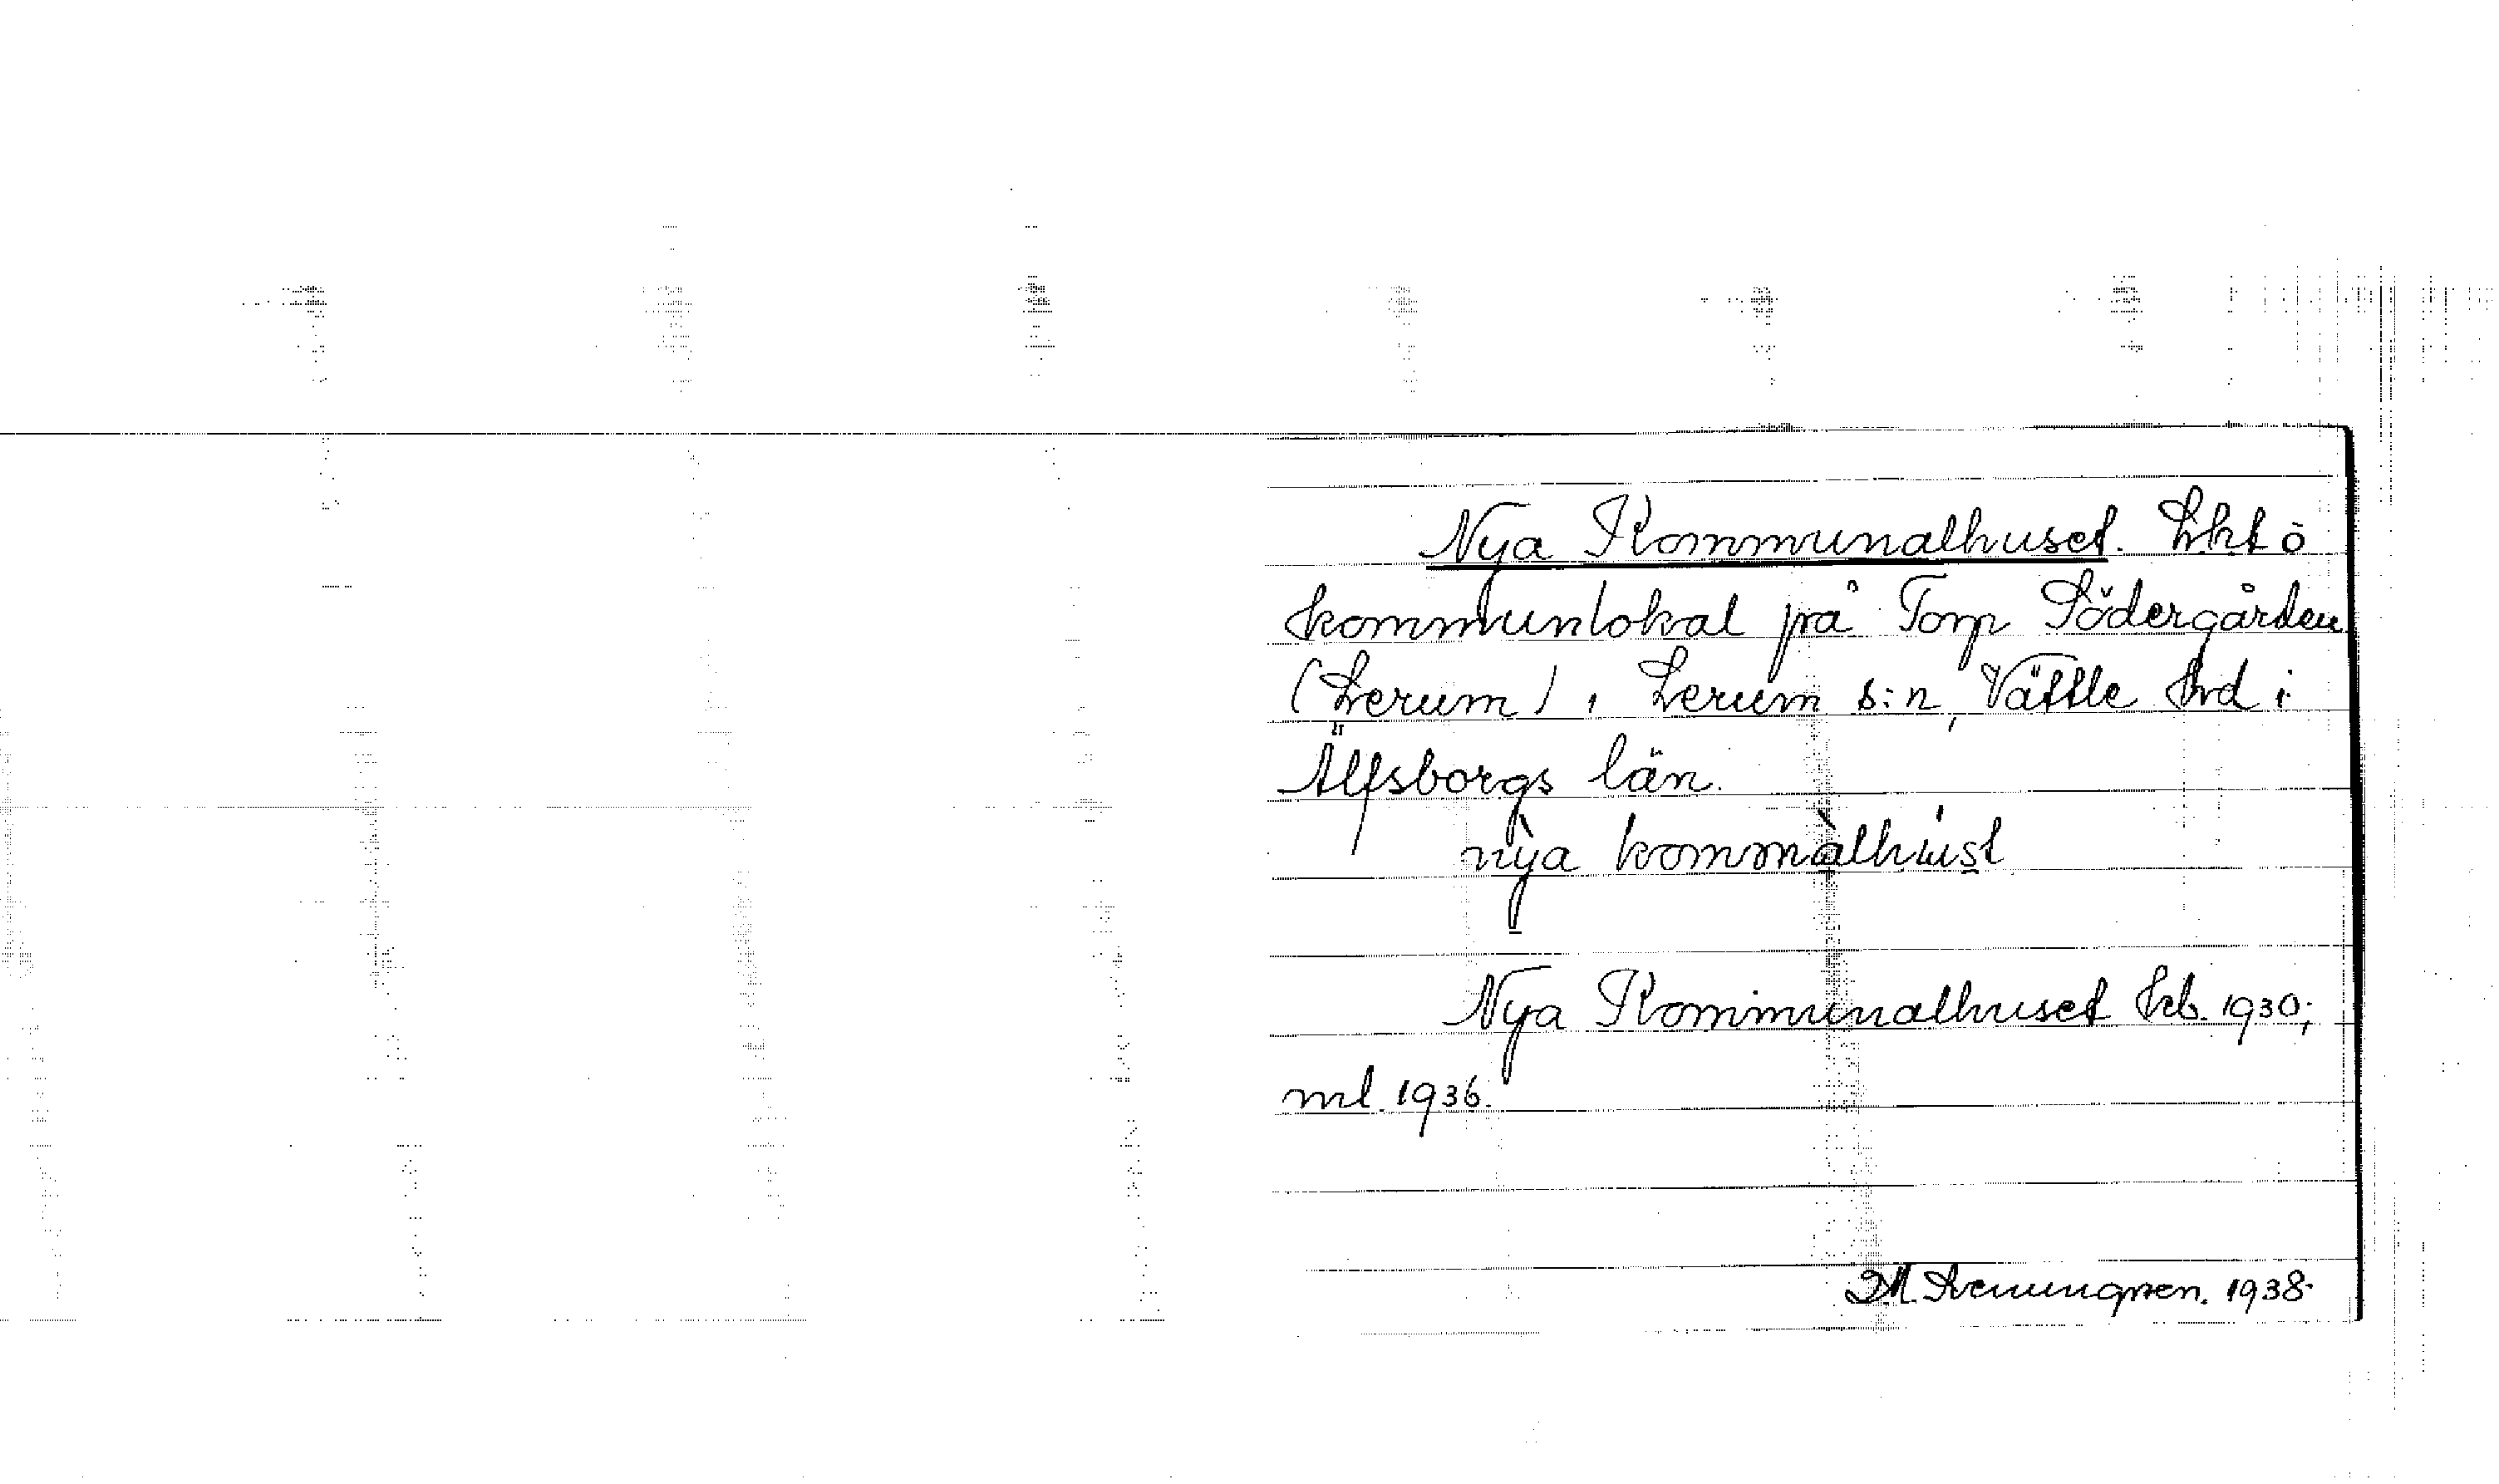 Nya Kommunalhuset. Lht ö
kommunlokal på Torp Södergården
(Lerum), Lerum s:n, Vättle hd i
Älfsborgs län.
nỳa kommàlhúst
Nya Kommunalhuset hb. 1930;
ml. 1936.
1938.